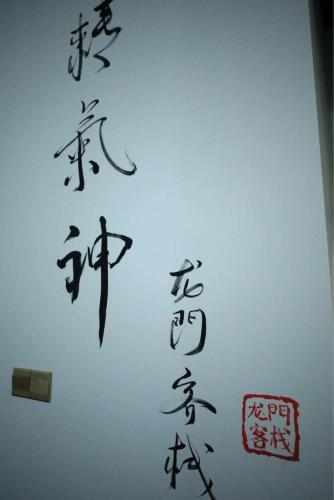 精氣神
龙門客栈
龙門客栈